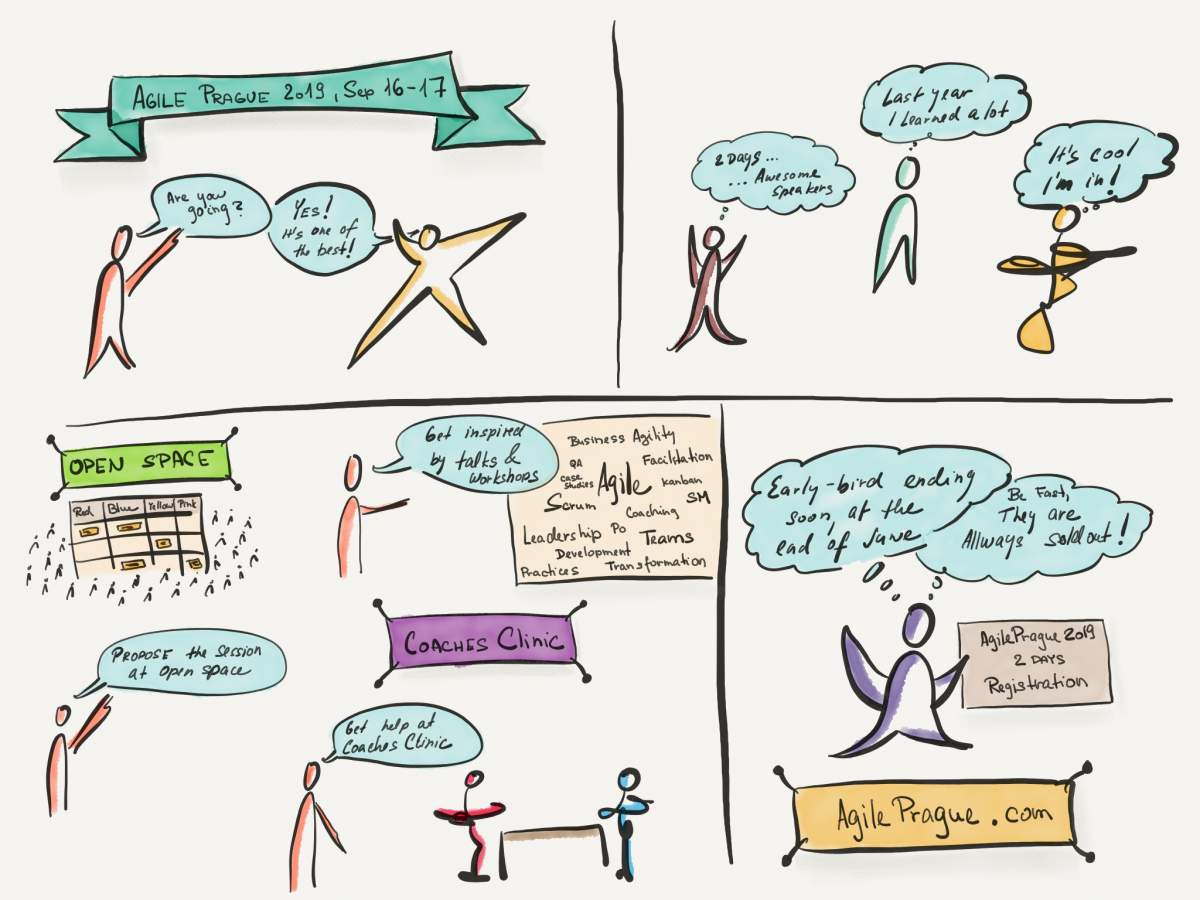 AGILE PRAGUE 2019, Sep 16-17
Are you
going?
YES!
It's one of
the best!
2 DAYS ...
... Awesome
speakers
Last year
I learned a lot
It's cool
I'm in!
OPEN SPACE
Red Blue Yellow Pink
Get inspired
by talks &
workshops
Business Agility
QA
Facilitation
case
studies
Agile
kanban
Scrum
SM
Coaching
Leadership
Po
Teams
Development
Practices
Transformation
PROPOSE the session
at open space
COACHES Clinic
Get help at
Coaches Clinic
Early-bird ending
soon, at the
end of June
Be Fast,
They are
Allways sold out!
AgilePrague 2019
2 DAYS
Registration
AgilePrague.com